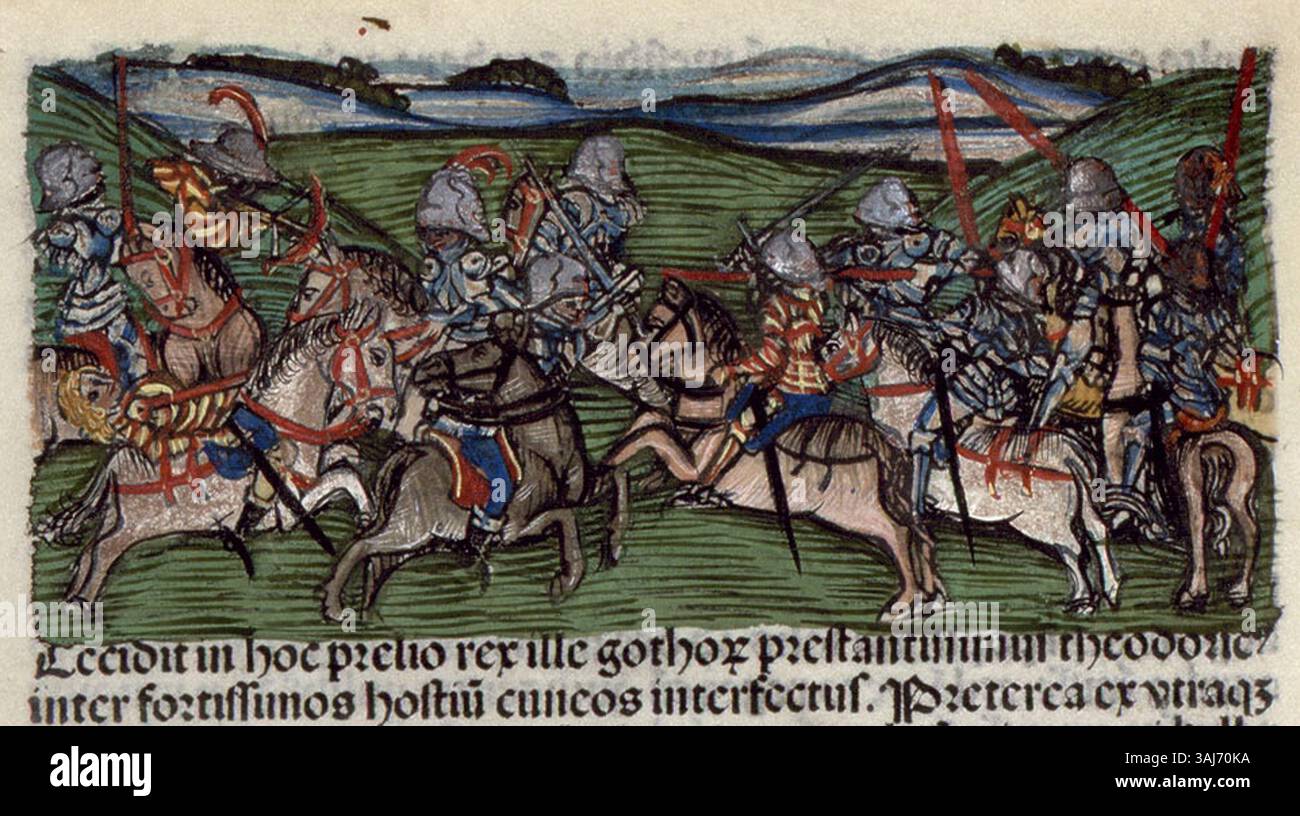 Cecidit in hoc prelio rex ille gothoꝝ prestantissimus theodoric⁹
inter fortissimos hostiū cuneos interfectus. Preterea ex vtraqꝫ
alamy
Image ID: 3AJ70KA
www.alamy.com